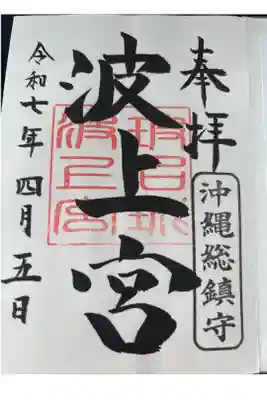 奉拝
沖縄総鎮守
波上宮
令和七年四月五日